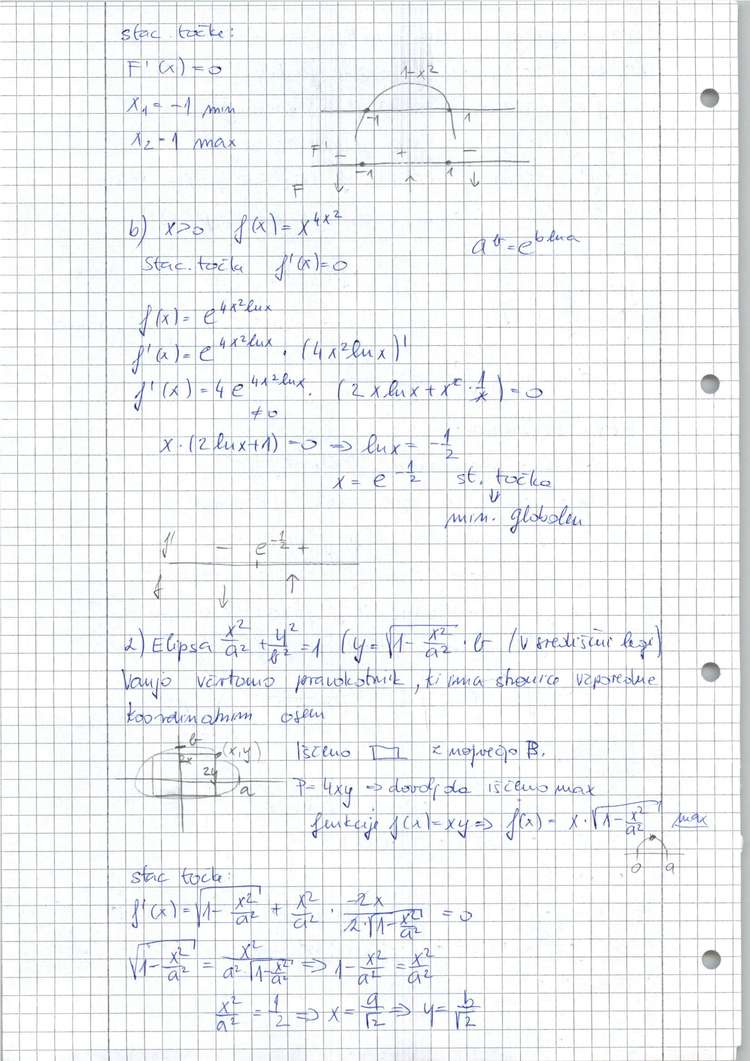 stac. točke:
F'(x)=0
x₁=-1 min
x₂-1 max
1-x²
-1 1
F' - + -
-1 1
F ↓ ↑ ↓
b) x>0 f(x)=x^{4x²}
a^b=e^{b ln a}
stac. točka f'(x)=0
f(x)=e^{4x²lnx}
f'(x)=e^{4x²lnx}·(4x²lnx)'
f'(x)=4e^{4x²lnx}·(2xlnx+x²·1/x)=0
≠0
x·(2lnx+1)=0 ⇒ lnx=-1/2
x=e^{-1/2} st. točka
↓
min. globalen
f' - e^{-1/2} +
f ↓ ↑
2) Elipsa x²/a²+y²/b²=1 (y=√(1-x²/a²)·b (v središčni legi)
Vanjo včrtamo pravokotnik, ki ima stranice vzporedne
koordinatnim osem
b (x,y)
2x
2y
a
Iščemo z največjo
P=4xy ⇒ dovolj da iščemo max
funkcije f(x)=xy ⇒ f(x)=x·√(1-x²/a²) max
0 a
stac točka:
f'(x)=√(1-x²/a²)+x²/a²·-2x/(2·√(1-x²/a²))=0
√(1-x²/a²)=x²/(a²·√(1-x²/a²)) ⇒ 1-x²/a²=x²/a²
x²/a²=1/2 ⇒ x=a/√2 ⇒ y=b/√2